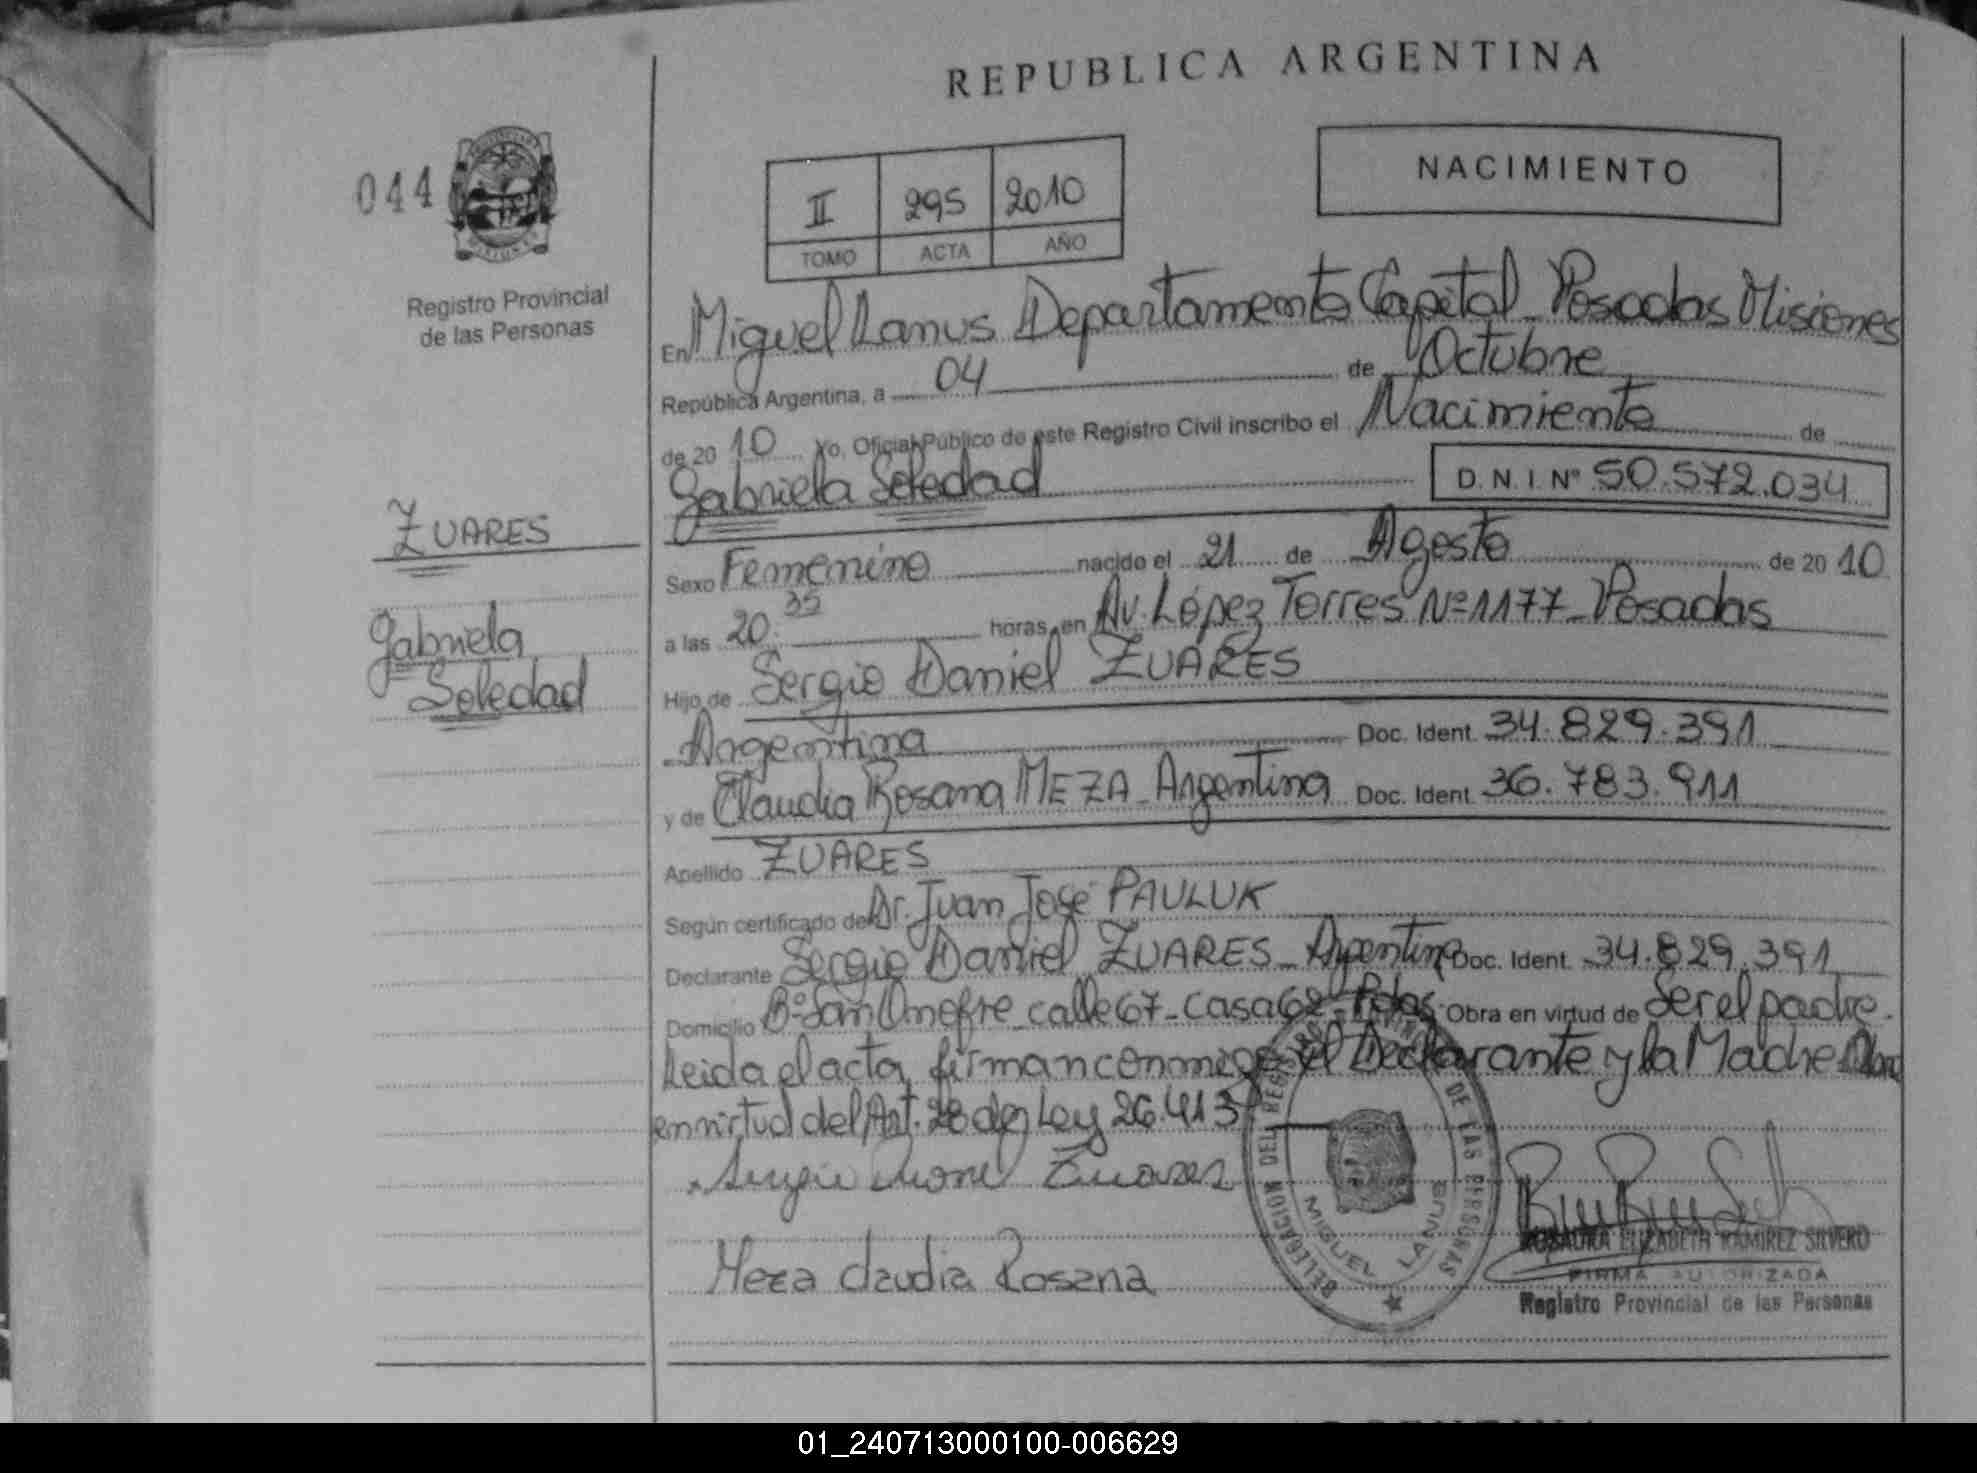 REPUBLICA ARGENTINA
044
Registro Provincial
de las Personas
II 295 2010
TOMO ACTA AÑO
NACIMIENTO
En Miguel Lanus Departamento Capital - Posadas Misiones
República Argentina, a 04 de Octubre
de 20 10 Yo, Oficial Público de este Registro Civil inscribo el Nacimiento de
Gabriela Soledad D.N.I. Nº 50.572.034
ZUARES
Gabriela
Soledad
Sexo Femenino nacido el 21 de Agosto de 20 10
a las 20.35 horas, en Av. López Torres Nº 1177 - Posadas
Hijo de Sergio Daniel ZUARES
Argentina Doc. Ident. 34.829.391
y de Claudia Rosana MEZA - Argentina Doc. Ident. 36.783.911
Apellido ZUARES
Según certificado de Dr. Juan José PAULUK
Declarante Sergio Daniel ZUARES - Argentino Doc. Ident. 34.829.391
Domicilio Bº San Onofre - calle 67 - casa 62 - Pdas. Obra en virtud de Ser el padre.
Leida el acta, firman conmigo el Declarante y la Madre Obra
en virtud del Art. 28 de Ley 26.413
Sergio Daniel Zuares
Meza Claudia Rosana
DELEGACION DEL REGISTRO PROVINCIAL DE LAS PERSONAS
MIGUEL LANUS
ROSAURA ELIZABETH RAMIREZ SILVERO
FIRMA AUTORIZADA
Registro Provincial de las Personas
01_240713000100-006629